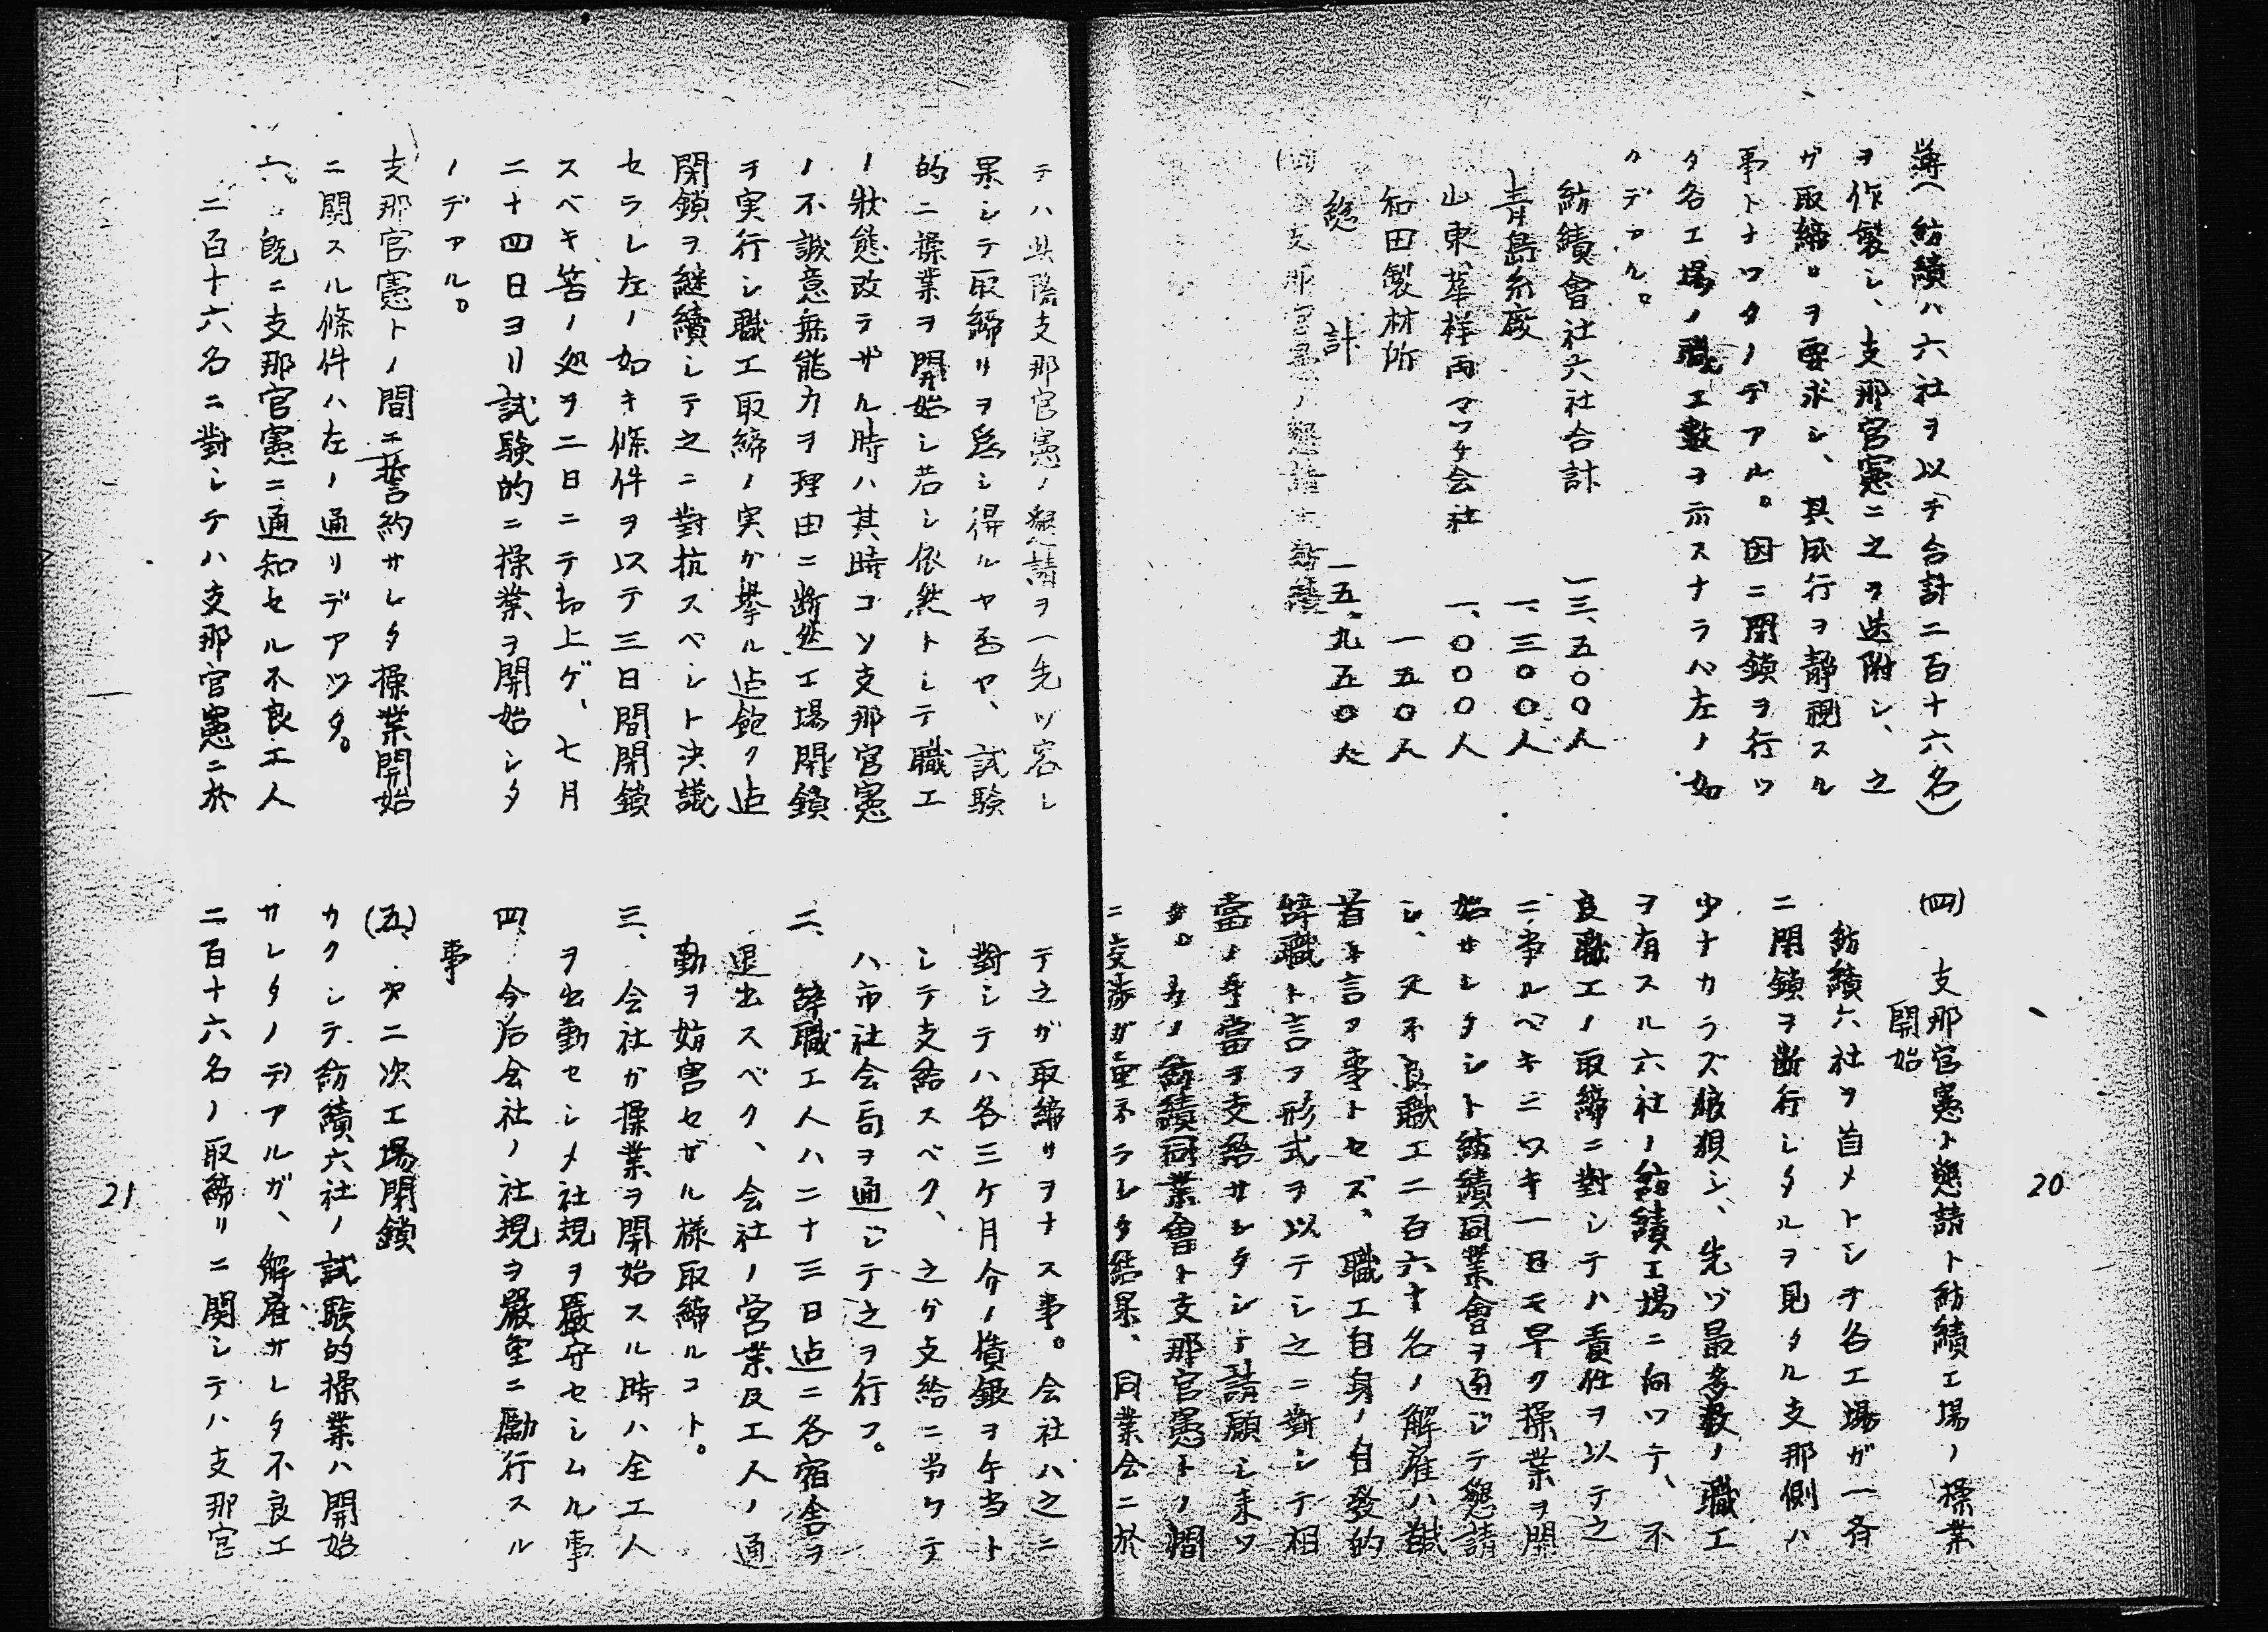 簿(紡績ハ六社ヲ以テ合計二百十六名)
ヲ作製シ、支那官憲ニ之ヲ送附シ、之
ガ取締リヲ要求シ、其成行ヲ静視スル
事トナツタノデアル。因ニ閉鎖ヲ行ツ
タ各工場ノ職工数ヲ示スナラバ左ノ如
クデアル。
紡績會社六社合計 一三、五〇〇人
青島糸廠 一、三〇〇人
山東、華祥両マツチ会社 一、〇〇〇人
和田製材所 一五〇人
総計 一五、九五〇人
(四) 支那官憲ノ懇請ト紡績
(四) 支那官憲ト懇請ト紡績工場ノ操業
開始
紡績六社ヲ首メトシテ各工場ガ一斉
ニ閉鎖ヲ断行シタルヲ見タル支那側ハ
少ナカラズ狼狽シ、先ヅ最多数ノ職工
ヲ有スル六社ノ紡績工場ニ向ツテ、不
良職工ノ取締ニ對シテハ責任ヲ以テ之
ニ事ルベキニツキ一日モ早ク操業ヲ開
始サレタシト紡績同業會ヲ通ジテ懇請
シ、又不良職工二百六十名ノ解雇ハ馘
首ト言フ事トセズ、職工自身ノ自發的
辞職ト言フ形式ヲ以テシ之ニ對シテ相
當ノ手當ヲ支給サレタシテ請願シ来ツ
タ。為ノ紡績同業會ト支那官憲トノ間
ニ交渉ガ重ネラレタ結果、同業会ニ於
20
テハ此際支那官憲ノ懇請ヲ一先ヅ容レ
果シテ取締リヲ為シ得ルヤ否ヤ、試験
的ニ操業ヲ開始シ若シ依然トシテ職工
ノ状態改ラザル時ハ其時コソ支那官憲
ノ不誠意無能力ヲ理由ニ断然工場閉鎖
ヲ実行シ職工取締ノ実ガ挙ル迠飽ク迠
閉鎖ヲ継續シテ之ニ對抗スベシト決議
セラレ左ノ如キ條件ヲ以テ三日間閉鎖
スベキ筈ノ処ヲ二日ニテ切上ゲ、七月
二十四日ヨリ試験的ニ操業ヲ開始シタ
ノデアル。
支那官憲トノ間ニ誓約サレタ操業開始
ニ関スル條件ハ左ノ通リデアツタ。
一、既ニ支那官憲ニ通知セル不良工人
二百十六名ニ對シテハ支那官憲ニ於
テ之ガ取締リヲナス事。会社ハ之ニ
對シテハ各三ケ月分ノ賃銀ヲ手当ト
シテ支給スベク、之ガ支給ニ当ツテ
ハ市社会局ヲ通ジテ之ヲ行フ。
二、辞職工人ハ二十三日迠ニ各宿舎ヲ
退出スベク、会社ノ営業及工人ノ通
勤ヲ妨害セザル様取締ルコト。
三、会社ガ操業ヲ開始スル時ハ全工人
ヲ出勤セシメ社規ヲ嚴守セシムル事
四、今后会社ノ社規ヲ嚴重ニ勵行スル
事
(五) 第二次工場閉鎖
カクシテ紡績六社ノ試験的操業ハ開始
サレタノデアルガ、解雇サレタ不良工
二百十六名ノ取締リニ関シテハ支那官
21